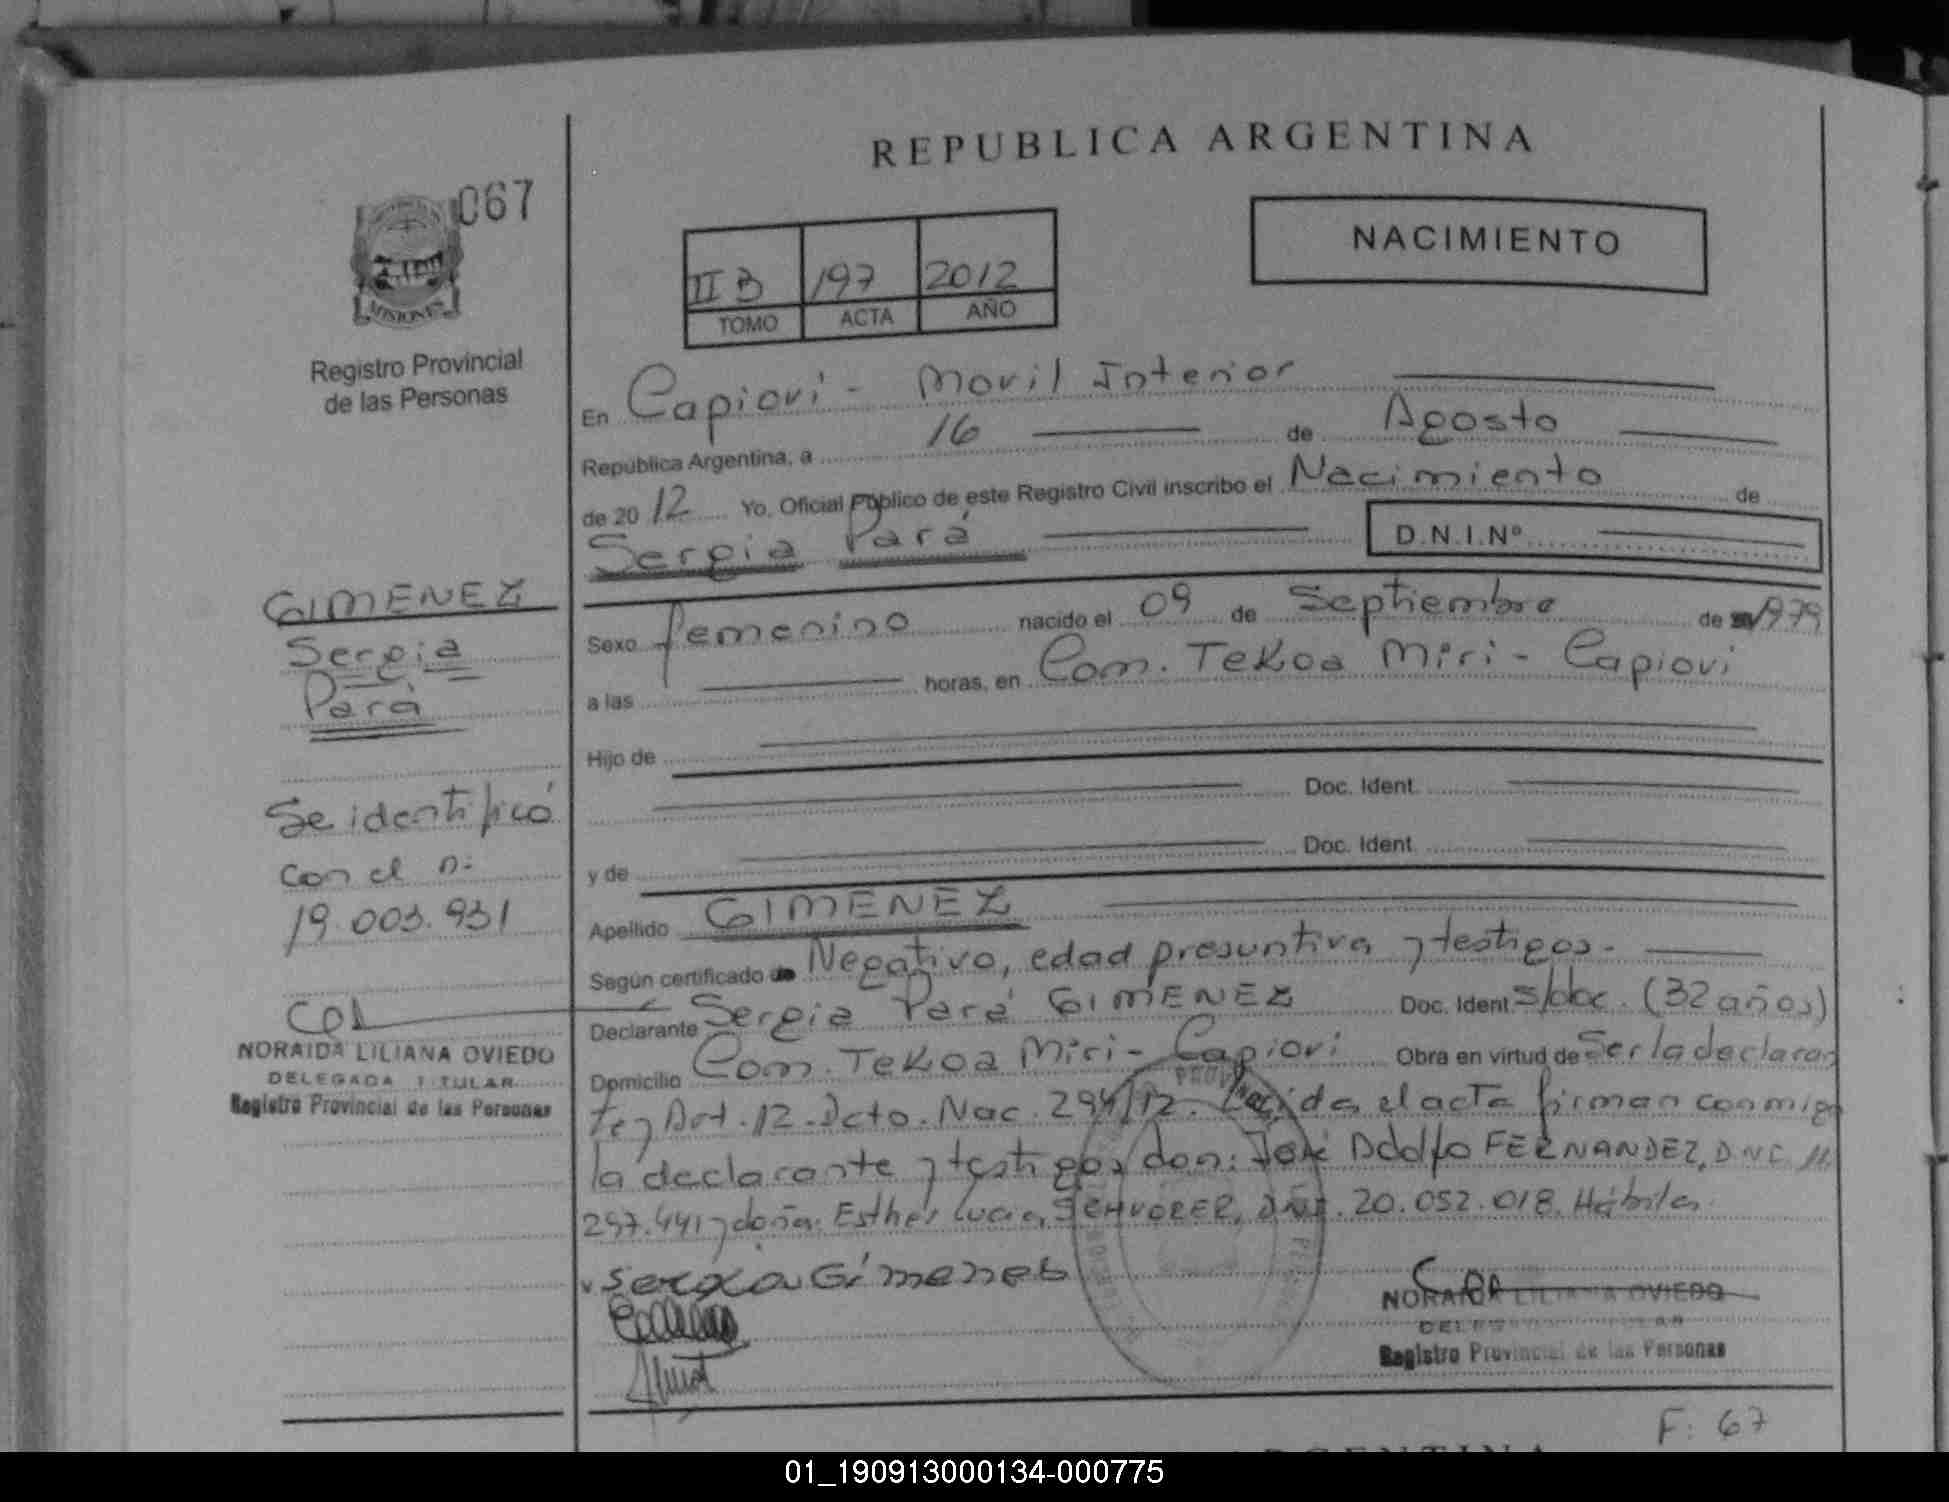 REPUBLICA ARGENTINA
067
MISIONES
Registro Provincial
de las Personas
II B 197 2012
TOMO ACTA AÑO
NACIMIENTO
En Capioví - Movil Interior
República Argentina, a 16 de Agosto
de 2012 Yo, Oficial Público de este Registro Civil inscribo el Nacimiento de
Sergia Pará D.N.I.Nº
GIMENEZ
Sergia
Pará
Sexo femenino nacido el 09 de Septiembre de 1979
a las horas, en Com. Tekoa Miri - Capiovi
Hijo de
Doc. Ident.
y de Doc. Ident.
Se identificó
con el n:
19.003.931
Apellido GIMENEZ
Según certificado de Negativo, edad presuntiva y testigos.
Declarante Sergia Pará GIMENEZ Doc. Ident. S/doc. (32 años)
Domicilio Com. Tekoa Miri - Capiovi Obra en virtud de Ser la declaran
te y Art. 12 - Dcto. Nac. 294/12. Leída el acta firman conmigo
la declarante y testigos don: José Adolfo FERNANDEZ, DNI. 11.
297.441 y doña: Esther Lucia DNI. 20.052.018. Hábiles.
NORAIDA LILIANA OVIEDO
DELEGADA TITULAR
Registro Provincial de las Personas
Sergia Gimenes
NORAIDA LILIANA OVIEDO
DELEGADA TITULAR
Registro Provincial de las Personas
F: 67
ARGENTINA
01_190913000134-000775